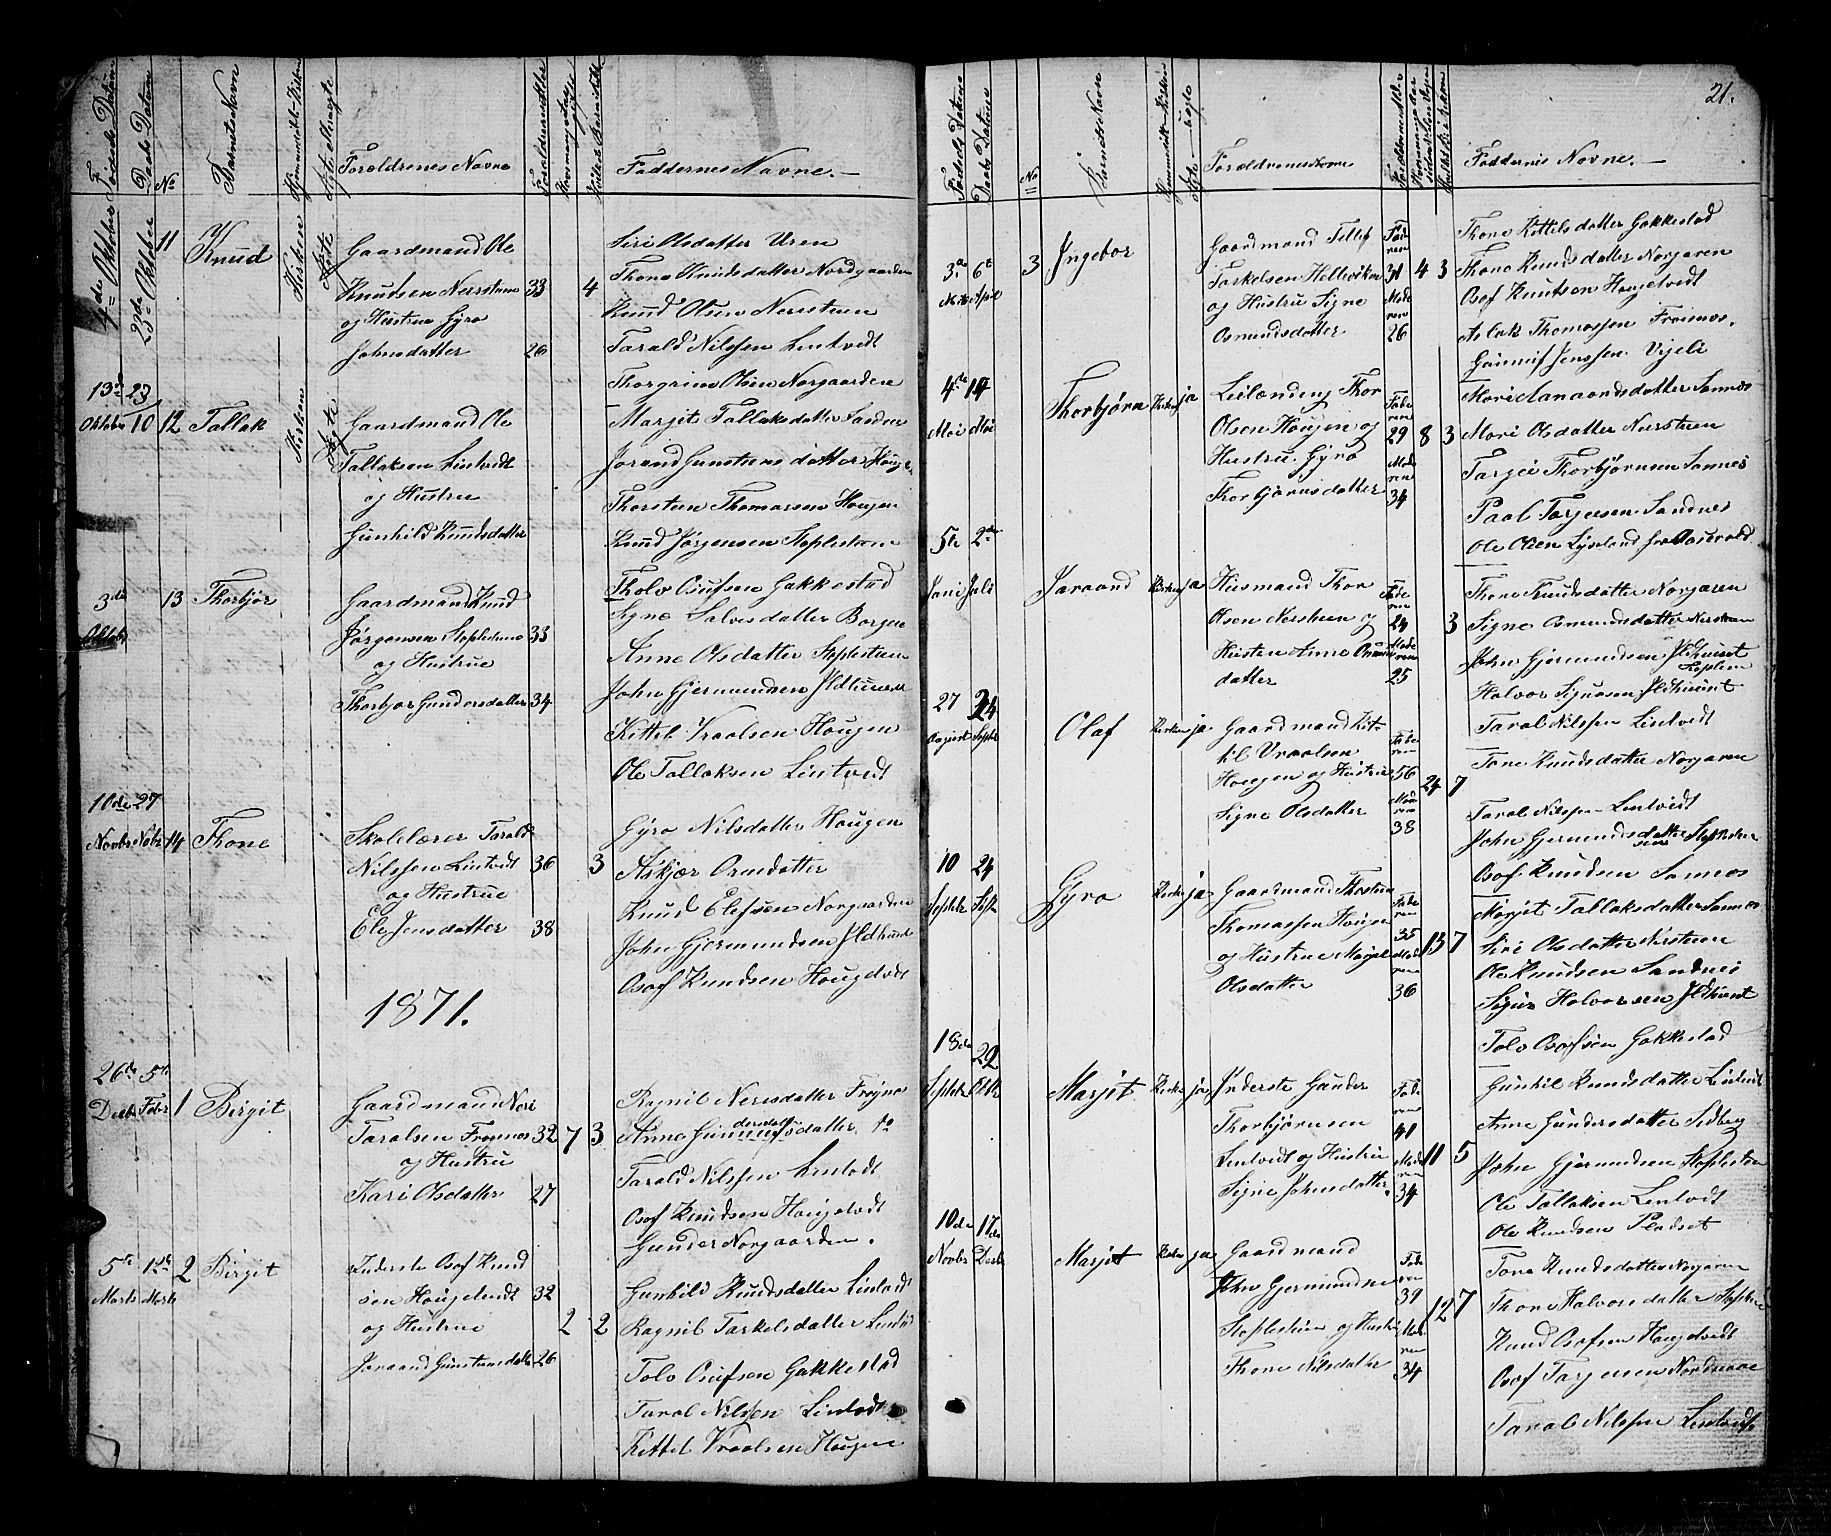 Fødsels Datum
Daabs Datum
No
Barnets Navn
Forældrenes Navne
Forældrenes Alder
Faddernes Navne.
4de Oktober
23de Oktober
11
Knud
Kirken
Ægte
Gaardmand Ole
Knudsen Nerstene 33
og Hustrue Gyro
Johnsdatter 26
4
Siri Olsdatter Uren
Thone Knudsdatter Nordgaarden
Knud Olsen Nersteen
Tarald Nilssen Lintvedt
Thorgrim Olsen Norgaarden
13de Oktober
23/10
12
Tallak
Kirken
Ægte
Gaardmand Ole
Tallaksen Lintvedt
og Hustrue
Gunhild Knudsdatter
Margit Tallaksdatter Sanden
Jorand Gunstensdatter Houge
Thorsteen Thomassen Hougen
Knud Jørgensen Stoplesteen
Tholv Osufsen Gakkestad
3de Oktobr
13
Thorbjør
Gaardmand Knud
Jørgensen Stoplesteen 33
og Hustrue
Thorbjor Gundersdatter 34
Signe Salvesdatter Borgen
Anne Olsdatter Stoplesteen
John Gjermundsen Ildhuset
Kittel Vraalsen Hougen
Ole Tallaksen Lintvedt
10de Novbr
27 Nobr
14
Thone
Skolelærer Tarald
Nilssen Lintvedt 36
og Hustrue
Eli Jensdatter 38
3
Gyro Nilsdatter Hougen
Askjær Ormdatter
Knud Elefsen Norgaarden
John Gjermundsen Ildhuset
Osof Knudsen Hougetvedt
1871.
26de Decbr
5te Febr
1
Birgit
Gaardmand Neri
Taralsen Frøsnes 32 7 3
og Hustru
Kari Olsdatter 27
Ragnil Nerisdatter Frøsnes
Anne Gundersdatter do
Tarald Nilssen Lintvedt
Osof Knudsen Hougetvedt
Gunder Norgaarden.
5te Marts
12te Marts
2
Birgit
Inderste Osof Knud
sen Hougetvedt 32
og Hustrue 2 2
Joraand Gunstensdatter 26
Gunhild Knudsdatter Lintvedt
Ragnil Tarkelsdatter Lintvedt
Tolv Osufsen Gakkestad
Taral Nilssen Lintvedt
Kittel Vraalsen Hougen
21.
Fødsels Datum
Daabs Datum
No
Barnets Navn
Forældrenes Navne
Faddernes Navne.
3de Mts
6te April
3
Ingebor
Gaardmand Tellef
Torkelsen Hellevikne
og Hustru Signe
Osmundsdatter
Faderen 31
Moderen 26
4 3
Thone Kittilsdatter Gakkestad
Thone Knudsdatter Norgaren
Osof Knutsen Hougetvedt
Aslak Thomassen Frøsnes.
Gunneif Jenssen Vigeli
4de Mai
14 Mai
Thorbjørn
Kirken ja
Leilænding Thor
Olsen Hougen og
Hustru Gyro
Thorbjørnsdatter
Faderen 29
Moderen 34
8 3
Mari Aanaardsdatter Sannes
Mari Olsdatter Nersteen
Targei Thorbjørnsen Sannes
Paal Targeisen Sandnes
Ole Olsen Lyseland fra Aaserald
5te Juni
2de Juli
Joraand
Kirken ja
Husmand Thor
Olsen Nersteen og
Hustru Anne Osmunds
datter
Faderen 24
Moderen 25
3
Thone Knudsdatter Norgaren
Signe Osmundsdatter Nersteen
John Gjermundsen Ildhuset
Stoplesteen
Halvor Sigursen Ildhuset
Taral Nilssen Lintvedt
27 August
24 Septbr
Olaf
Kirken ja
Gaardmand Kit-
til Vraalsen
Hougen og Hustrue
Signe Olsdatter
Faderen 56
Moderen 38
24 7
Tone Knudsdatter Norgaren
Taral Nilssen Lintvedt
John Gjermundsen Stoplesteen
Osof Knudsen Sannes
10 Septbr
24 Sept
Gyro
Kirken ja
Gaardmand Thorsteen
Thomassen Hougen
og Hustrue Margit
Olsdatter
Faderen 35
Moderen 36
13 7
Margit Tallaksdatter Sannes
Siri Olsdatter Nersteen
Ole Knudsen Sandnes
Sigur Halvorsen Ildhuset
Tolv Osofsen Gakkestad
18de Septbr
22 Oktbr
Marjit
Kirken ja
Inderste Gunder
Thorbjørnsen
Lintvedt og Hustru
Signe Johnsdatter.
Faderen 41
Moderen 34
11 5
Gunhil Knudsdatter Lintvedt
Anne Gundersdatter Sedberg
John Gjermundsen Stoplesteen
Ole Tallaksen Lintvedt
Ole Knudsen Pladset
10de Novbr
17de Decbr
Marjit
Kirken ja
Gaardmand
John Gjermundsen
Stoplesteen og Hustru
Thone Nilsdatter
Faderen 39
Moderen 34
12 7
Tone Knudsdatter Norgaren
Thone Halvorsdatter Stoplesteen
Knud Osofsen Hougetvedt
Osof Targeisen Nordgaarden
Taral Nilssen Lintvedt